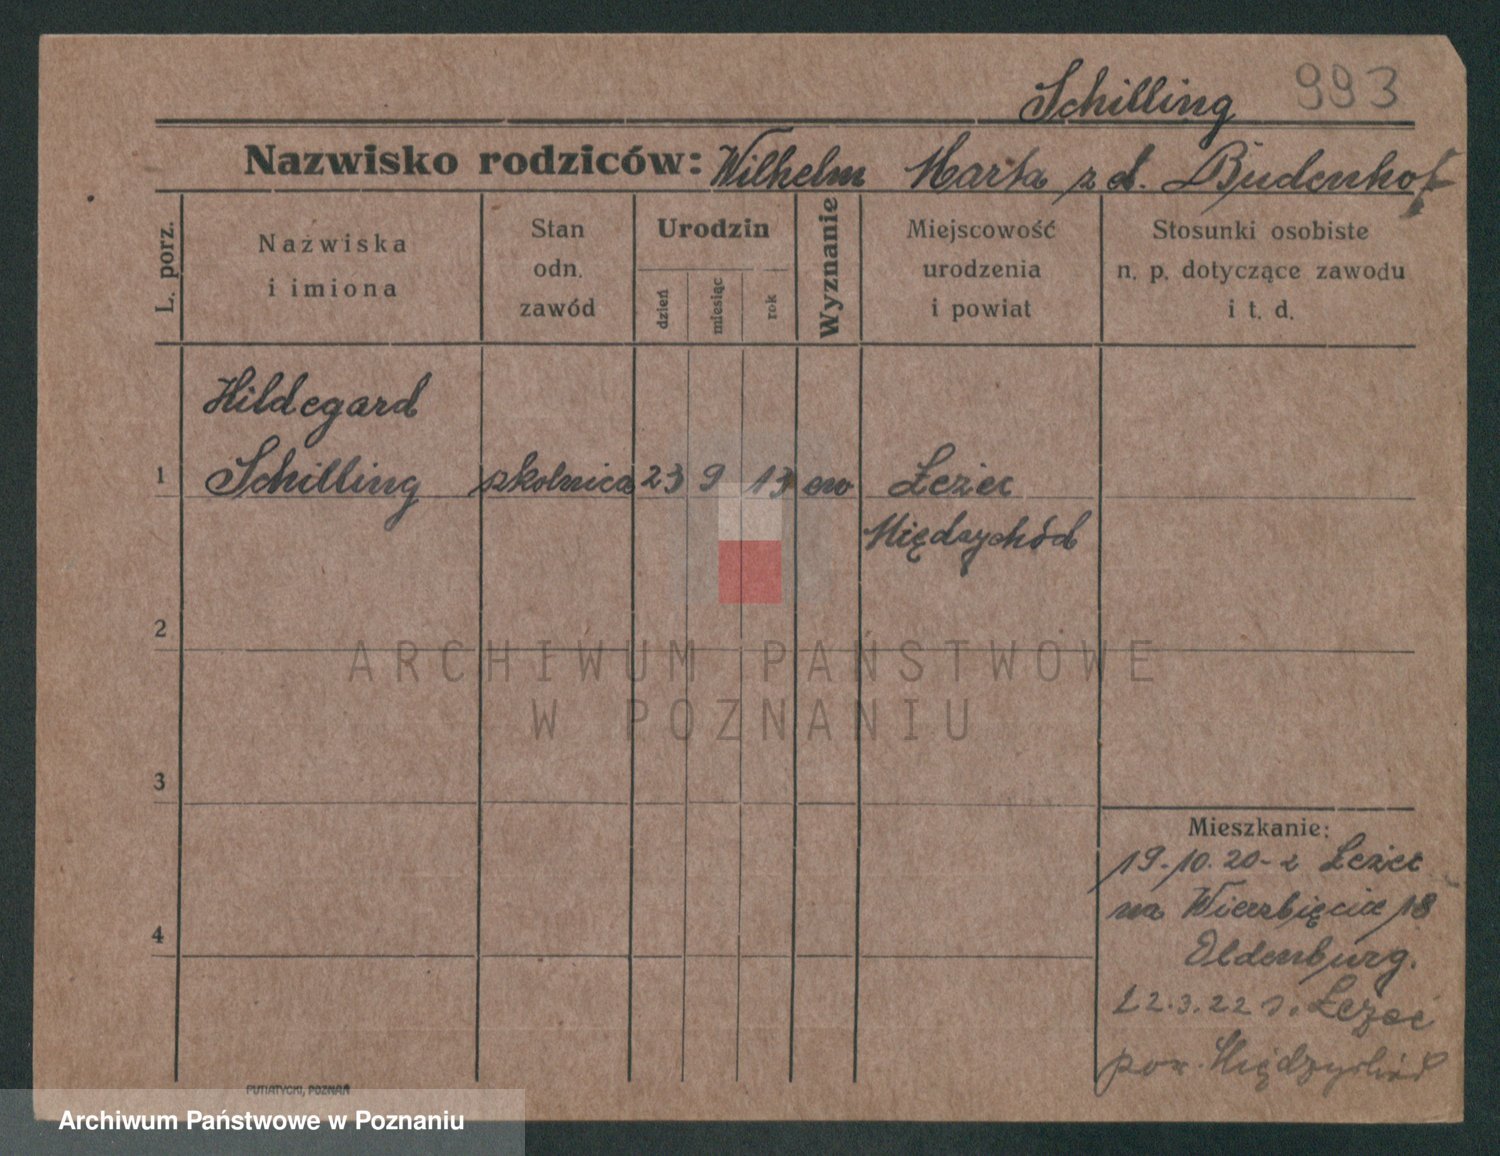 Schilling 993
Nazwisko rodziców: Wilhelm Marta z d. Budenhof
L. porz.
Nazwiska
i imiona
Stan
odn.
zawód
Urodzin
dzień
miesiąc
rok
Wyznanie
Miejscowość
urodzenia
i powiat
Stosunki osobiste
n. p. dotyczące zawodu
i t. d.
Hildegard
1 Schilling szkolnica 23 9 13 ew Łężec
Międzychód
2
3
4
Mieszkanie:
19.10.20 - z Leżec
na Wierzbięcice 18
Oldenburg.
22.3.22 Leżec
pow. Międzychód
PUTIATYCKI, POZNAŃ
ARCHIWUM PAŃSTWOWE
W POZNANIU
Archiwum Państwowe w Poznaniu